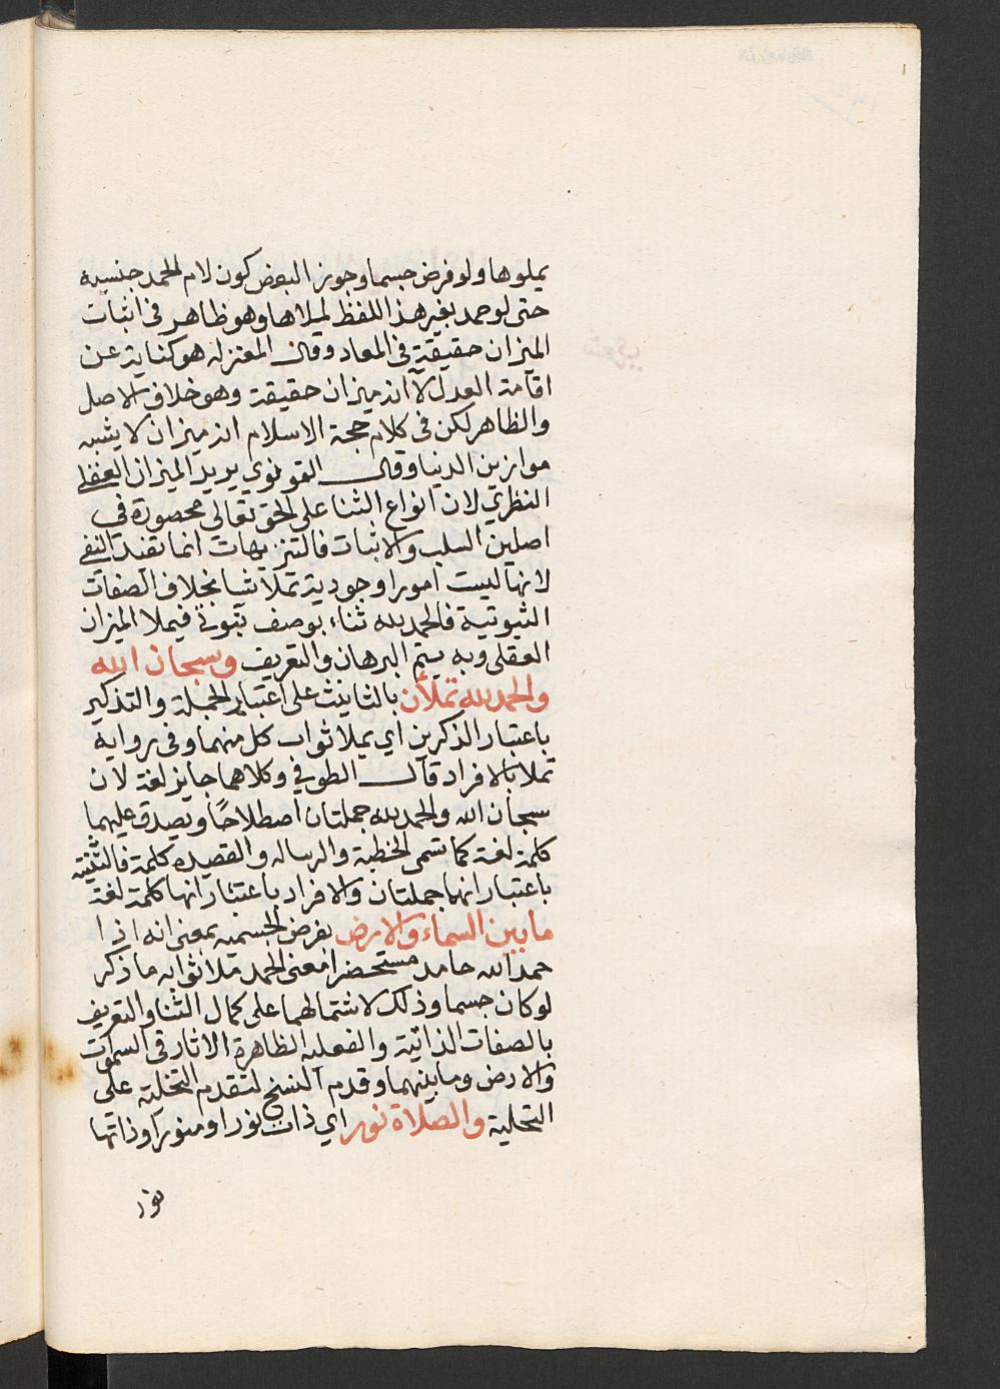 يملوها ولو فرض جسما وجوز البعض كون لام الحمد جنسيه
حتى لو حمد بغير هذا اللفظ لملاها وهو ظاهر في اثبات
الميزان حقيقة في المعاد وقال المعتزله هو كناية عن
اقامة العدل لا انه ميزان حقيقة وهو خلاف الاصل
والظاهر لكن في كلام حجة الاسلام انه ميزان لا يشبه
موازين الدنيا وقال القونوي يريد الميزان العقلي
النظري لان انواع الثنا على الحق تعالي محصورة في
اصلين السلب والاثبات فالتنزيهات انما تفيد النفي
لانها ليست امورا وجودية تملأ شيا بخلاف الصفات
الثبوتية فالحمد لله ثناء بوصف ثبوتي فيملا الميزان
العقلى وبه يتم البرهان والتعريف وسبحان الله
والحمد لله تملأن بالتانيث على اعتبار الجملة والتذكير
باعتبار الذكرين اي يملا ثواب كل منهما وفى روايه
تملا بالافراد قال الطوفي وكلاهما جايز لغة لان
سبحان الله والحمد لله جملتان اصطلاحًا ويصدق عليهما
كلمة لغة كما تسمى الخطبة والرساله والقصيده كلمة فالتثنيته
باعتبار انهما جملتان والافراد باعتبار انها كلمة لغة
ما بين السماء والارض بفرض الجسميه بمعنى انه اذا
حمد الله حامد مستحضرا معنى الحمد ملا ثوابه ما ذكر
لو كان جسما وذلك لاشتمالهما على كمال الثنا والتعريف
بالصفات الذاتية والفعليه الظاهرة الاثار في السموات
والارض وما بينهما وقدم التسبيح لتقدم التخلية على
التحلية والصلاة نور اي ذات نور او منورا وذاتها
نور